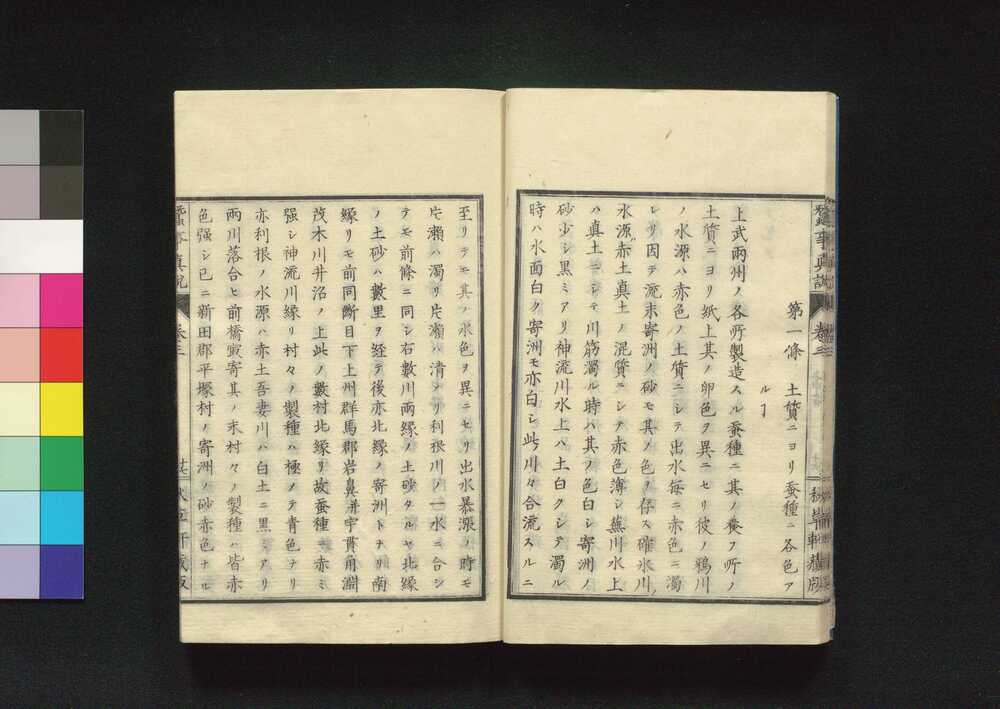 蠶事眞説 卷三
第一條 土質ニヨリ蚕種ニ各色ア
ルヿ
上武兩州ノ各所製造スル蚕種ニ其ノ養フ所ノ
土質ニヨリ紙上其ノ卵色ヲ異ニセリ彼ノ鴉川
ノ水源ハ赤色ノ土質ニシテ出水毎ニ赤色ニ濁
レリ因テ流末寄洲ノ砂モ其ノ色ヲ存ス確氷川ノ
水源赤土真土ノ混質ニシテ赤色薄シ蕪川水上
ハ真土ニシテ川筋濁ル時ハ其ノ色白シ寄洲ノ
砂少シ黒ミアリ神流川水上ハ土白クシテ濁ル
時ハ水面白ク寄洲モ亦白シ此川々合流スルニ
至リテモ其ノ水色ヲ異ニセリ出水暴漲ノ時モ
片瀬ハ濁リ片瀬ハ清メリ利根川ノ一水ニ合シ
テモ前條ニ同シ右數川兩縁ノ土砂タルヤ北縁
ノ土砂ハ數里ヲ経テ後亦北縁ノ寄洲トナリ南
縁リモ前同断目下上州群馬郡岩鼻并宇貫角淵
茂木川井沼ノ上此ノ數村北縁リ故蚕種ニ赤ミ
強シ神流川縁リ村々ノ製種ハ極メテ青色ナリ
亦利根ノ水源ハ赤土吾妻川ハ白土ニ黒ミアリ
兩川落合ヒ前橋寅寄其ノ末村々ノ製種ハ皆赤
色强シ已ニ新田郡平塚村ノ寄洲ノ砂赤色ナル
卷三